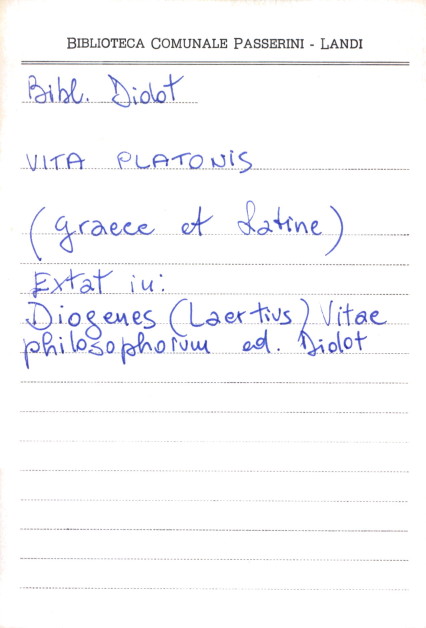 BIBLIOTECA COMUNALE PASSERINI - LANDI
Bibl. Didot
VITA PLATONIS
(graece et Latine)
Extat in:
Diogenes (Laertius) Vitae
philosophorum ed. Didot